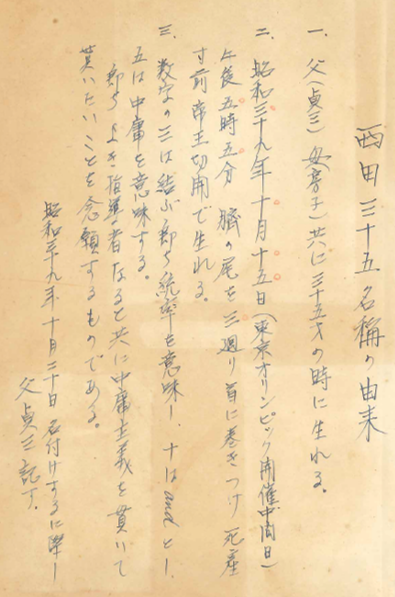 西田三十五名称の由来
一、父(貞三)母(幸子)共に三十五才の時に生れる。
二、昭和三十九年十月十五日(東京オリンピック開催中間日)
午後五時五分 臍の尾を三廻り首に巻きつけ死産
寸前帝王切開で生れる。
三、数字の三は結ぶ即ち統率を意味し、十はandとし、
五は中庸を意味する。
即ちよき指導者なると共に中庸主義を貫いて
貰いたいことを念願するものである。
昭和三十九年十月二十日 名付けするに際し
父貞三記す。